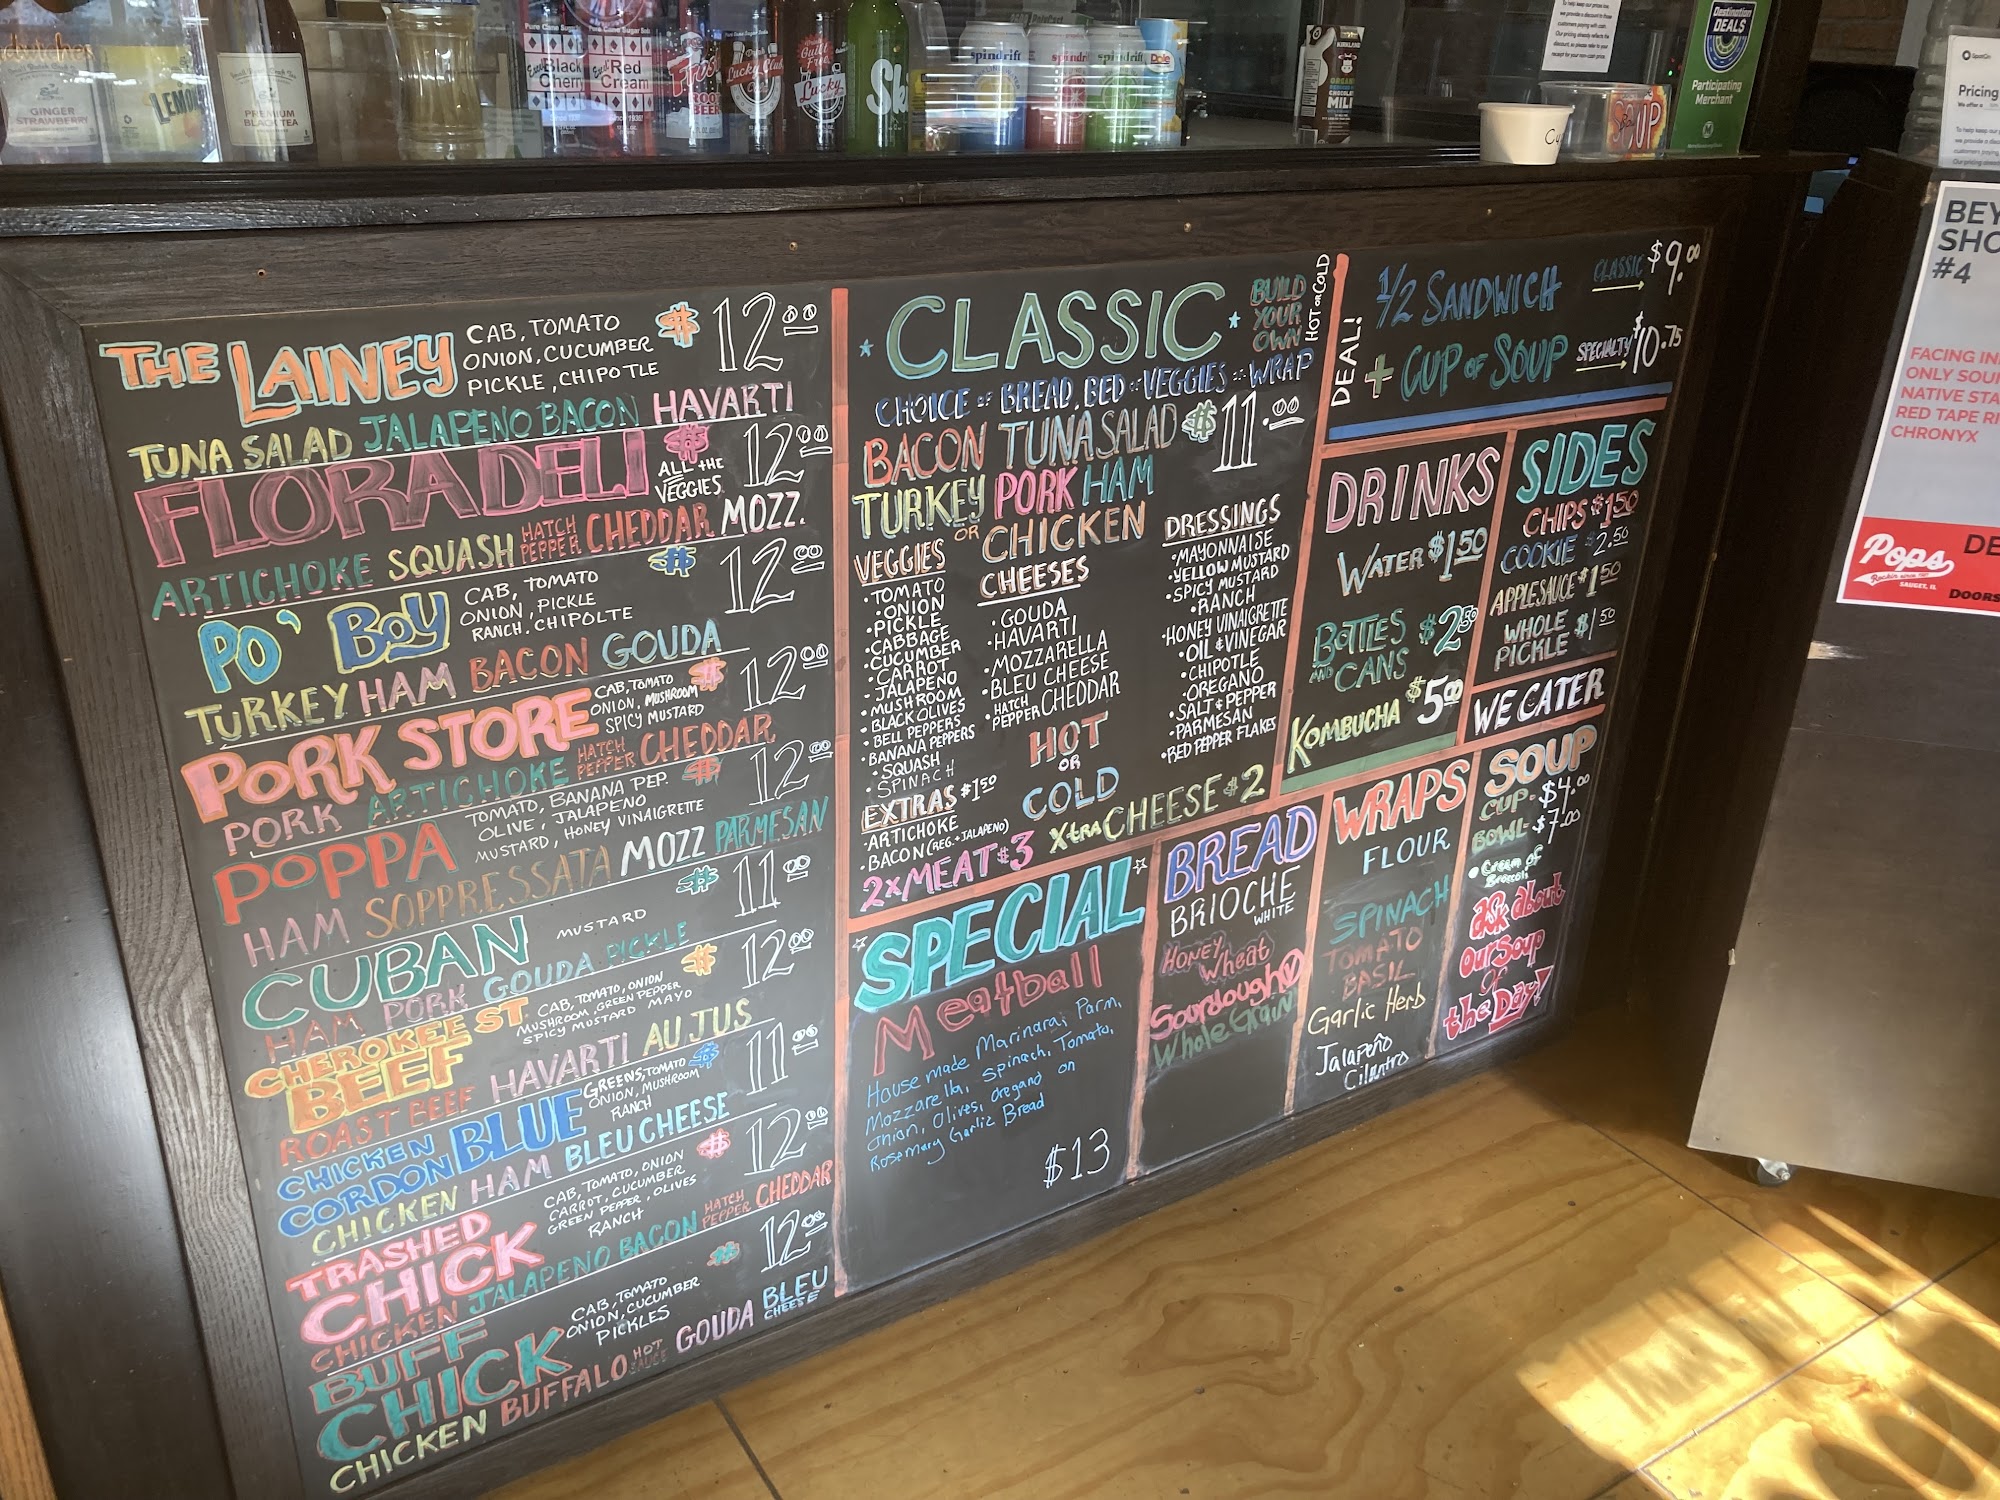 GINGER
STRAWBERRY
LEMON
PREMIUM
BLACK TEA
Pure Cane Sugar
Black
Cherry
Red
Cream
ROOT
BEER
Lucky Club
Guilt
Free
Lucky
Sk
spindrift
spindrift
spindrift
Dole
KIRKLAND
ORGANIC
CHOCOLATE
MILK
SOUP
Destination
DEALS
Participating
Merchant
SpotOn
Pricing
BEY
SHO
#4
FACING IN
ONLY SOU
NATIVE STA
RED TAPE RI
CHRONYX
Pops
Rockin since 1981
SAUGET, IL
DE
DOORS
THE LAINEY
CAB, TOMATO
ONION, CUCUMBER
PICKLE, CHIPOTLE
$12.00
TUNA SALAD JALAPENO BACON HAVARTI
FLORADELI
ALL THE
VEGGIES
$12.00
ARTICHOKE SQUASH HATCH PEPPER CHEDDAR MOZZ.
PO' BOY
CAB, TOMATO
ONION, PICKLE
RANCH, CHIPOLTE
$12.00
TURKEY HAM BACON GOUDA
PORK STORE
CAB, TOMATO
ONION, MUSHROOM
SPICY MUSTARD
$12.00
PORK ARTICHOKE HATCH PEPPER CHEDDAR
POPPA
TOMATO, BANANA PEP.
OLIVE, JALAPENO
MUSTARD, HONEY VINAIGRETTE
$12.00
HAM SOPPRESSATA MOZZ PARMESAN
CUBAN
MUSTARD
$11.00
HAM PORK GOUDA PICKLE
CHEROKEE ST
BEEF
CAB, TOMATO, ONION
MUSHROOM, GREEN PEPPER
SPICY MUSTARD MAYO
$12.00
ROAST BEEF HAVARTI AU JUS
CHICKEN
CORDON BLUE
GREENS, TOMATO
ONION, MUSHROOM
RANCH
$11.00
CHICKEN HAM BLEU CHEESE
TRASHED
CHICK
CAB, TOMATO, ONION
CARROT, CUCUMBER
GREEN PEPPER, OLIVES
RANCH
$12.00
CHICKEN JALAPENO BACON HATCH PEPPER CHEDDAR
BUFF
CHICK
CAB, TOMATO
ONION, CUCUMBER
PICKLES
$12.00
CHICKEN BUFFALO HOT SAUCE GOUDA BLEU CHEESE
CLASSIC
BUILD
YOUR
OWN
HOT OR COLD
CHOICE OF BREAD, BED OF VEGGIES OR WRAP
BACON TUNA SALAD $11.00
TURKEY PORK HAM
OR CHICKEN
VEGGIES
• TOMATO
• ONION
• PICKLE
• CABBAGE
• CUCUMBER
• CARROT
- JALAPENO
• MUSHROOM
• BLACK OLIVES
• BELL PEPPERS
• BANANA PEPPERS
• SQUASH
• SPINACH
EXTRAS $1.50
• ARTICHOKE
• BACON (REG. + JALAPENO)
2X MEAT $3
CHEESES
• GOUDA
• HAVARTI
• MOZZARELLA
• BLEU CHEESE
• HATCH PEPPER CHEDDAR
HOT
OR
COLD
XTRA CHEESE $2
DRESSINGS
• MAYONNAISE
• YELLOW MUSTARD
• SPICY MUSTARD
• RANCH
• HONEY VINAIGRETTE
• OIL & VINEGAR
• CHIPOTLE
• OREGANO
• SALT & PEPPER
• PARMESAN
• RED PEPPER FLAKES
DEAL!
1/2 SANDWICH
+ CUP OF SOUP
CLASSIC $9.00
SPECIALTY $10.75
DRINKS
WATER $1.50
BOTTLES
AND CANS $2.50
KOMBUCHA $5.00
SIDES
CHIPS $1.50
COOKIE $2.50
APPLESAUCE $1.50
WHOLE
PICKLE $1.50
WE CATER
SPECIAL
Meatball
House made Marinara, Parm,
Mozzarella, Spinach, Tomato,
Onion, Olives, oregano on
Rosemary Garlic Bread
$13
BREAD
BRIOCHE
WHITE
Honey Wheat
Sourdough V
Whole Grain
WRAPS
FLOUR
SPINACH
TOMATO
BASIL
Garlic Herb
Jalapeño
Cilantro
SOUP
CUP- $4.00
BOWL- $7.00
• Cream of
Broccoli
ask about
our Soup
of
the Day!